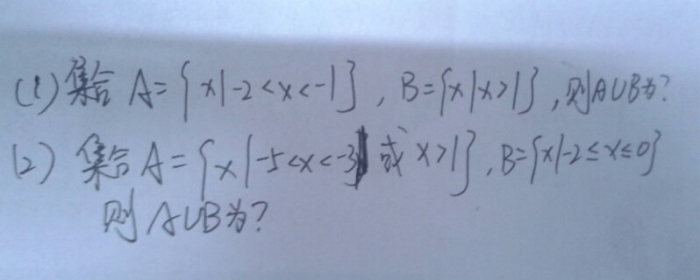 (1) 集合 A={x|-2<x<-1}, B={x|x>1}, 则A∪B为?
(2) 集合 A={x|-5<x<-3 或 x>1}, B={x|-2≤x≤0}
则 A∪B为?